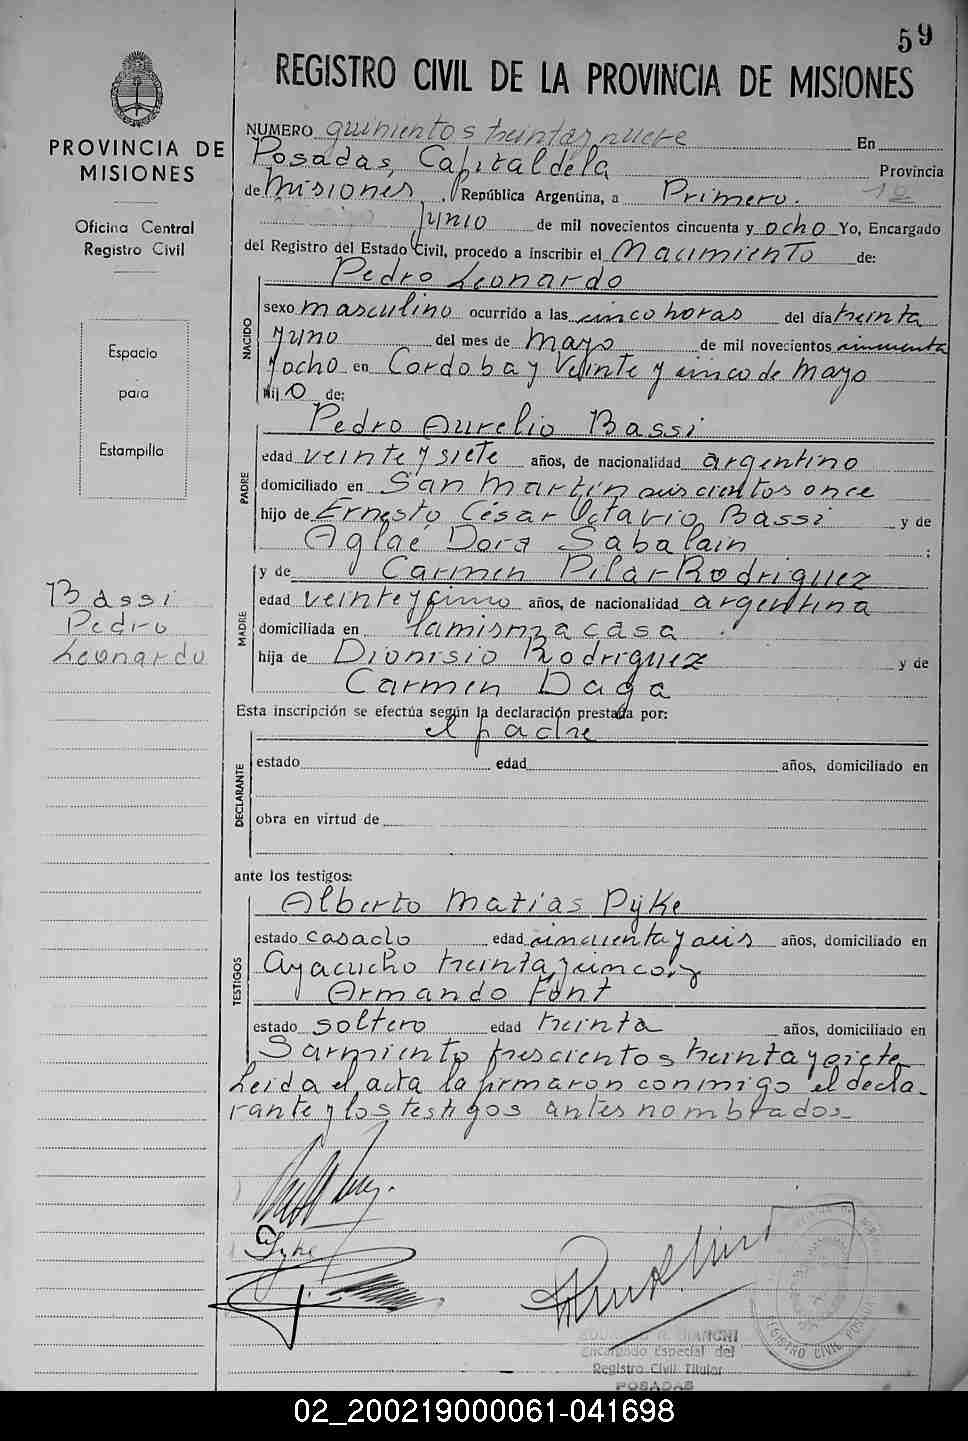 59
REGISTRO CIVIL DE LA PROVINCIA DE MISIONES
PROVINCIA DE
MISIONES
Oficina Central
Registro Civil
Espacio
para
Estampilla
Bassi
Pedro
Leonardo
NUMERO quinientos treinta y nueve En
Posadas, Capital de la Provincia
de Misiones, República Argentina, a Primero.
Junio de mil novecientos cincuenta y ocho Yo, Encargado
del Registro del Estado Civil, procedo a inscribir el Nacimiento de:
Pedro Leonardo
NACIDO
sexo masculino ocurrido a las cinco horas del día treinta
y uno del mes de Mayo de mil novecientos cincuenta
y ocho en Cordoba y Veinte y cinco de Mayo
Hijo de:
Pedro Aurelio Bassi
PADRE
edad veinte y siete años, de nacionalidad argentino
domiciliado en San Martin seiscientos once
hijo de Ernesto César Octavio Bassi y de
Aglaé Dora Sabalain :
y de Carmen Pilar Rodriguez
MADRE
edad veinte y cinco años, de nacionalidad argentina
domiciliada en la misma casa.
hija de Dionisio Rodriguez y de
Carmen Daga
Esta inscripción se efectúa según la declaración prestada por:
el padre
DECLARANTE
estado edad años, domiciliado en
obra en virtud de
ante los testigos:
Alberto Matias Pyke
TESTIGOS
estado casado edad cincuenta y seis años, domiciliado en
Ayacucho treinta y cinco, y
Armando Font
estado soltero edad treinta años, domiciliado en
Sarmiento trescientos treinta y siete
Leida el acta la firmaron conmigo el decla-
rante y los testigos antes nombrados
Pyke
REGISTRO CIVIL POSADAS
BIANCHI
Encargado Especial del
Registro Civil Titular
POSADAS
02_200219000061-041698